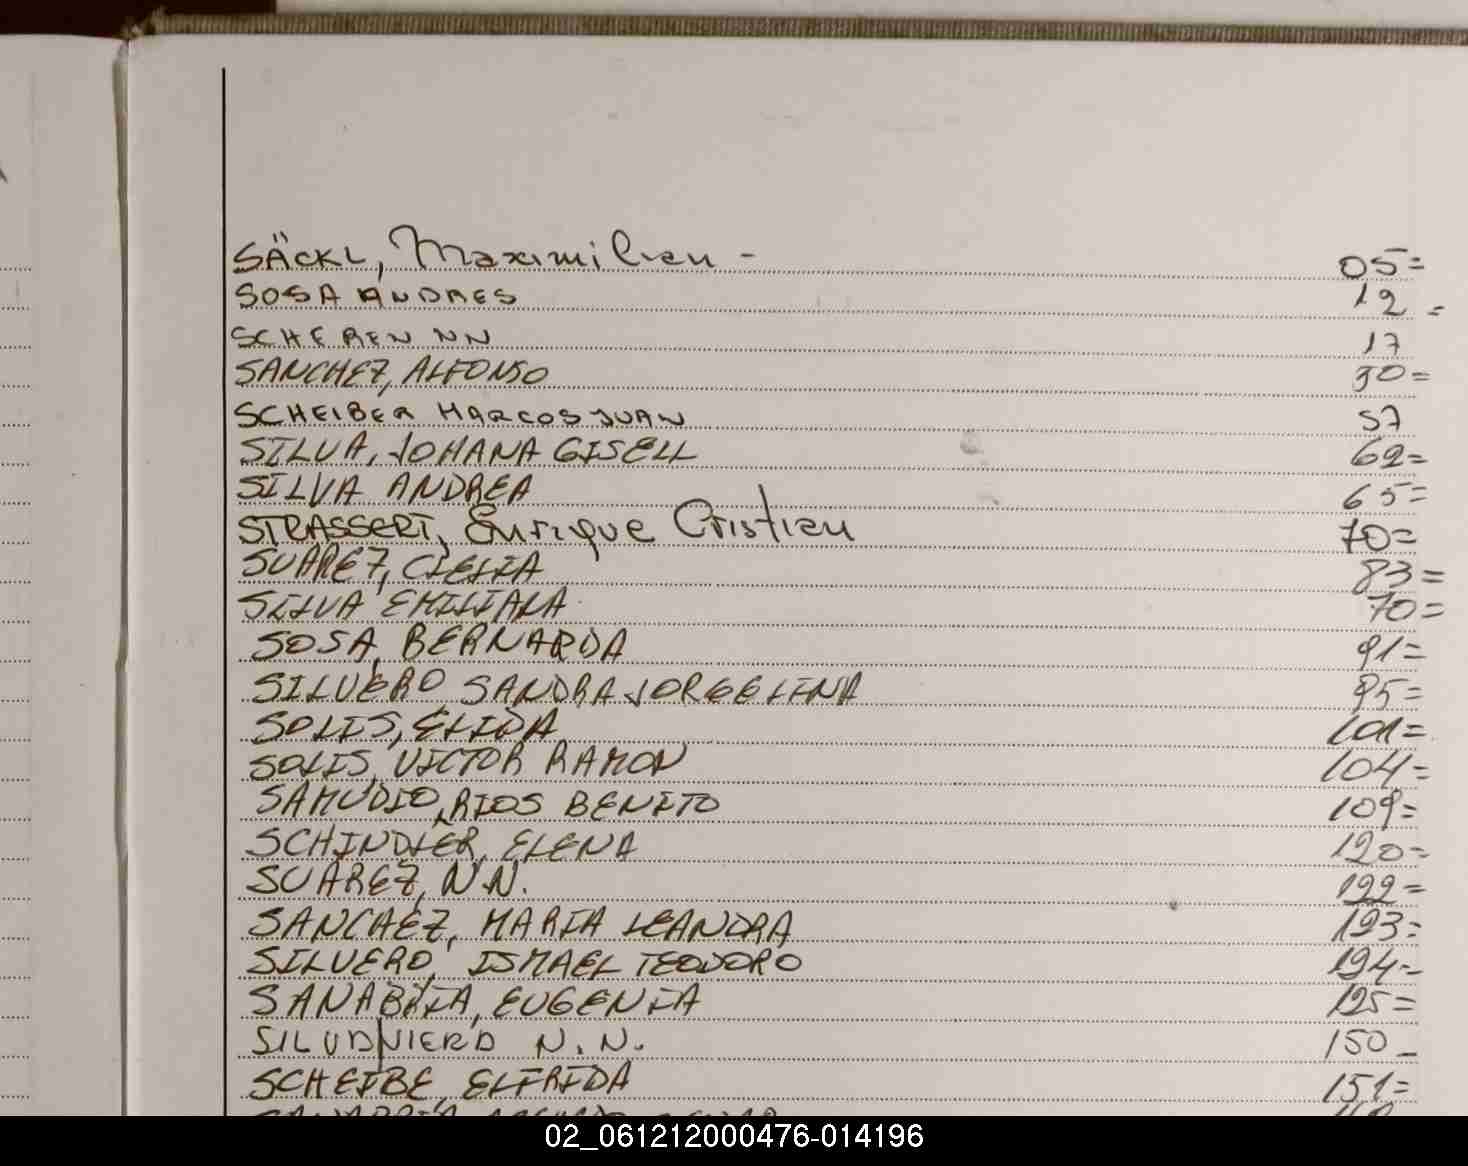 SÄCKL, Maximilian - 05=
SOSA ANDRES 12 =
SCHEREN NN 17
SANCHEZ, ALFONSO 30=
SCHEIBER MARCOS JUAN 57
SILVA, JOHANA GISELL 62=
SILVA ANDREA 65=
STRASSERT, Enrique Cristian 70=
SUAREZ, CLELIA 83=
SILVA EMILIANA 70=
SOSA, BERNARDA 91=
SILVERO SANDRA JORGELINA 95=
SOLIS, ELIDA 101=
SOLIS, VICTOR RAMON 104=
SAMUDIO, RIOS BENITO 109=
SCHINDLER, ELENA 120=
SUAREZ, N.N. 122=
SANCHEZ, MARIA LEANDRA 123=
SILVERO, ISMAEL TEODORO 124=
SANABRIA, EUGENIA 125=
N.N. 150 -
SCHEIBE, ELFRIDA 151=
02_061212000476-014196